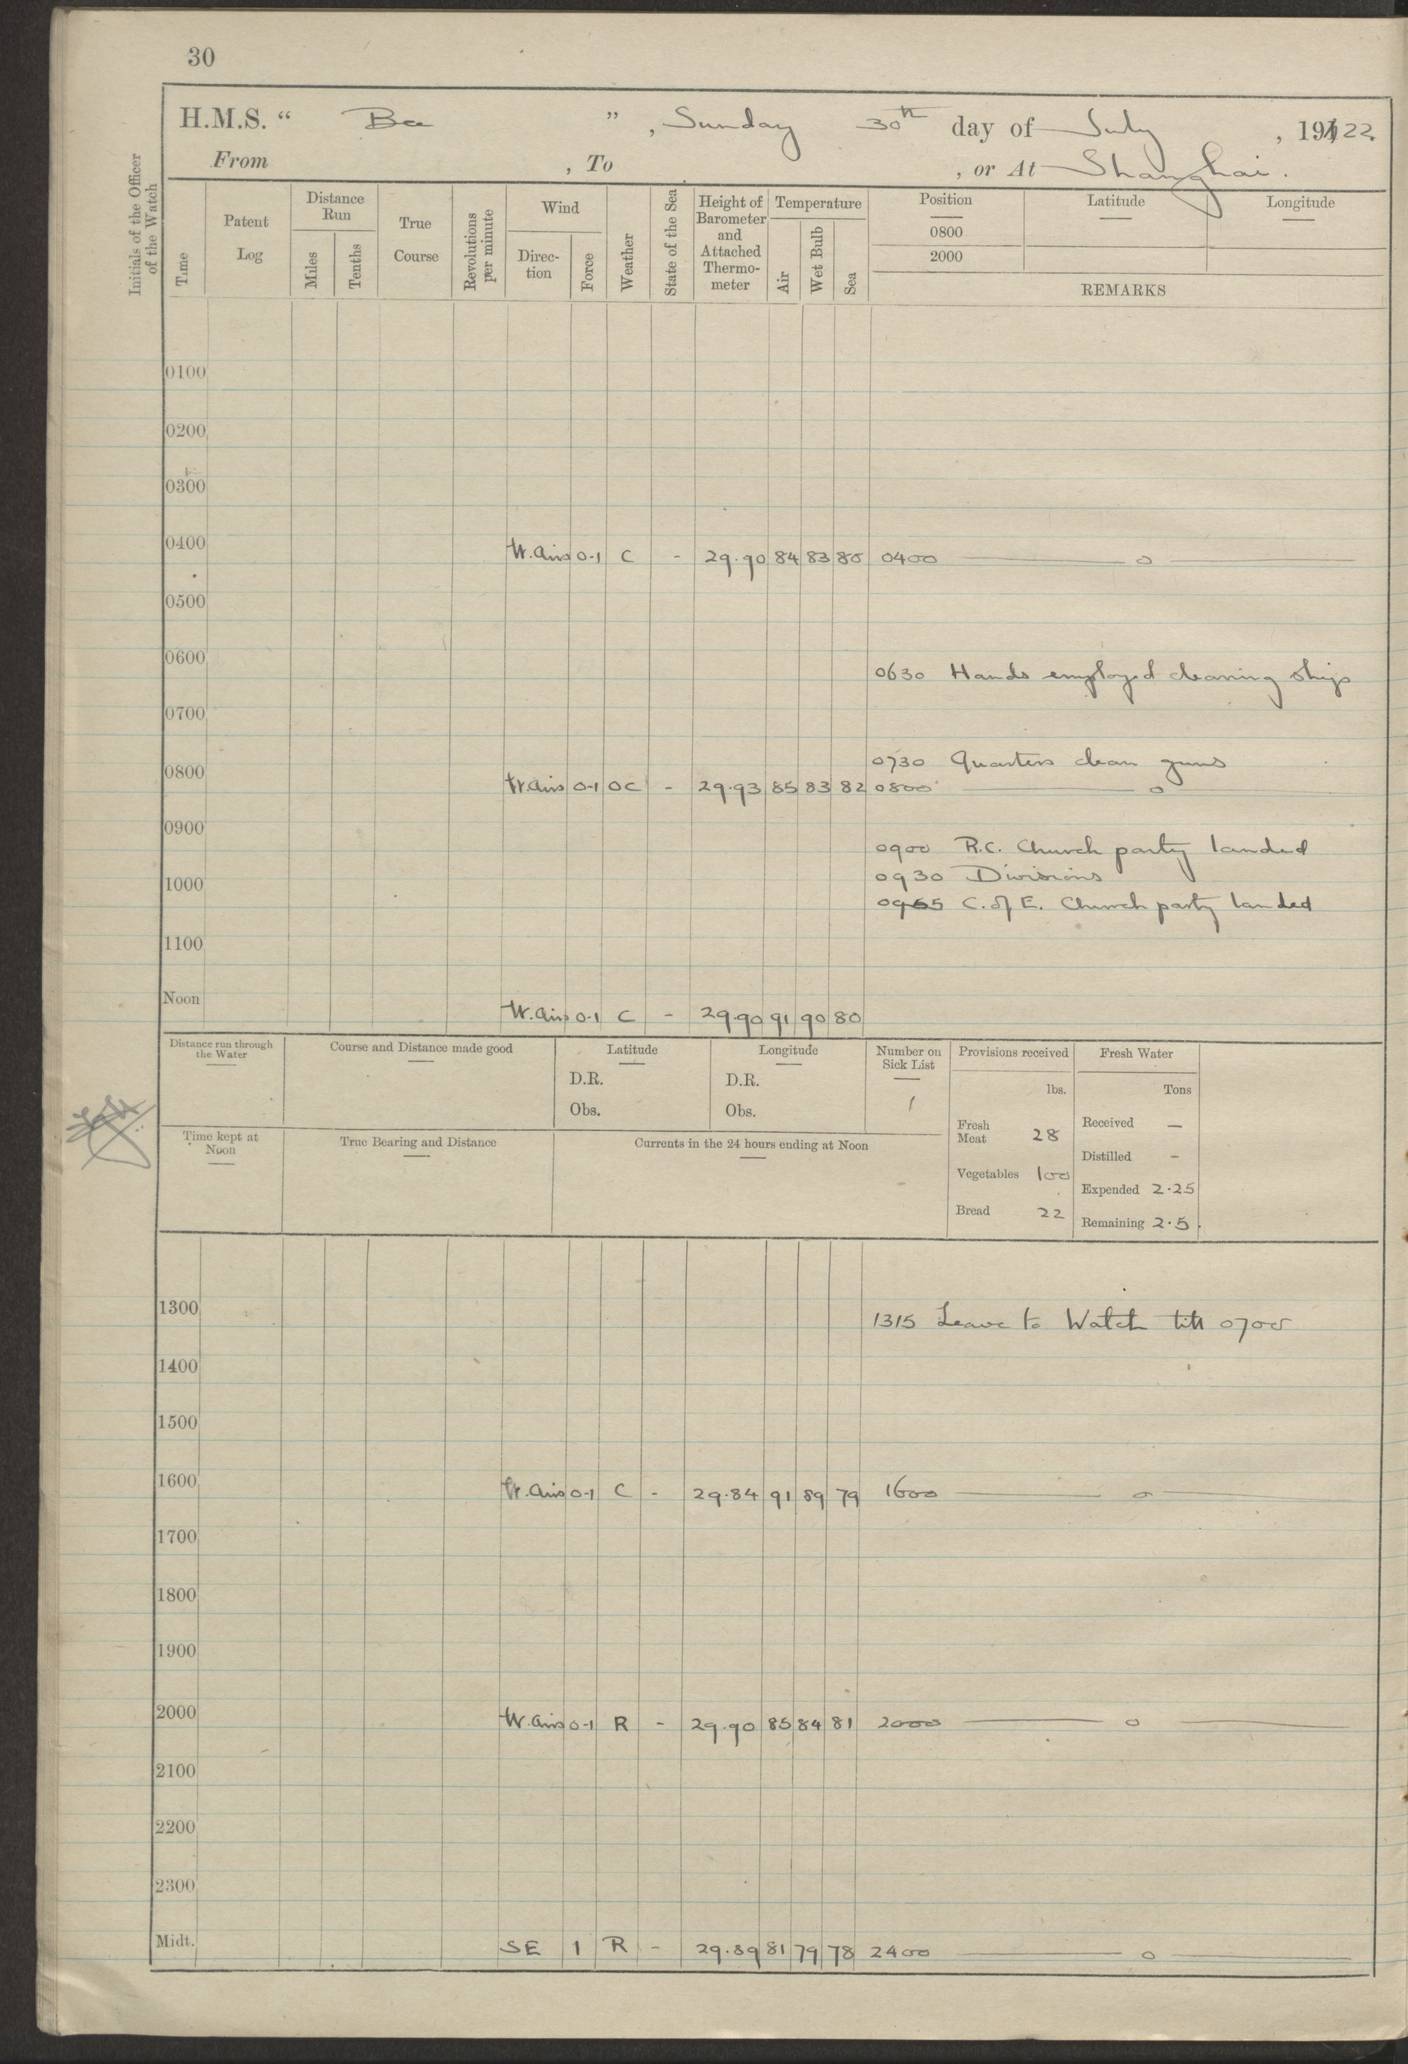 30
H.M.S. " Bee ", Sunday 30th day of July, 1922.
From , To , or At Shanghai.
Initials of the Officer of the Watch
Time
Patent Log
Distance Run
Miles
Tenths
True Course
Revolutions per minute
Wind
Direction
Force
Weather
State of the Sea
Height of Barometer and Attached Thermometer
Temperature
Air
Wet Bulb
Sea
Position
0800
2000
Latitude
Longitude
REMARKS
0100
0200
0300
0400 W. Airs 0-1 C - 29.90 84 83 80 0400 o
0500
0600
0630 Hands employed cleaning ship
0700
0730 Quarters clean guns
0800 W. Airs 0-1 OC - 29.93 85 83 82 0800 o
0900
0900 R.C. Church party landed
0930 Divisions
1000
0955 C. of E. Church party landed
1100
Noon W. Airs 0-1 C - 29.90 91 90 80
Distance run through the Water
Course and Distance made good
Latitude
D.R.
Obs.
Longitude
D.R.
Obs.
Number on Sick List
1
Provisions received
lbs.
Fresh Meat 28
Vegetables 100
Bread 22
Fresh Water
Tons
Received —
Distilled -
Expended 2.25
Remaining 2.5.
Time kept at Noon
True Bearing and Distance
Currents in the 24 hours ending at Noon
1300
1315 Leave to Watch till 0700
1400
1500
1600 W. Airs 0-1 C - 29.84 91 89 79 1600 o
1700
1800
1900
2000 W. Airs 0-1 R - 29.90 85 84 81 2000 o
2100
2200
2300
Midt. SE 1 R - 29.89 81 79 78 2400 o